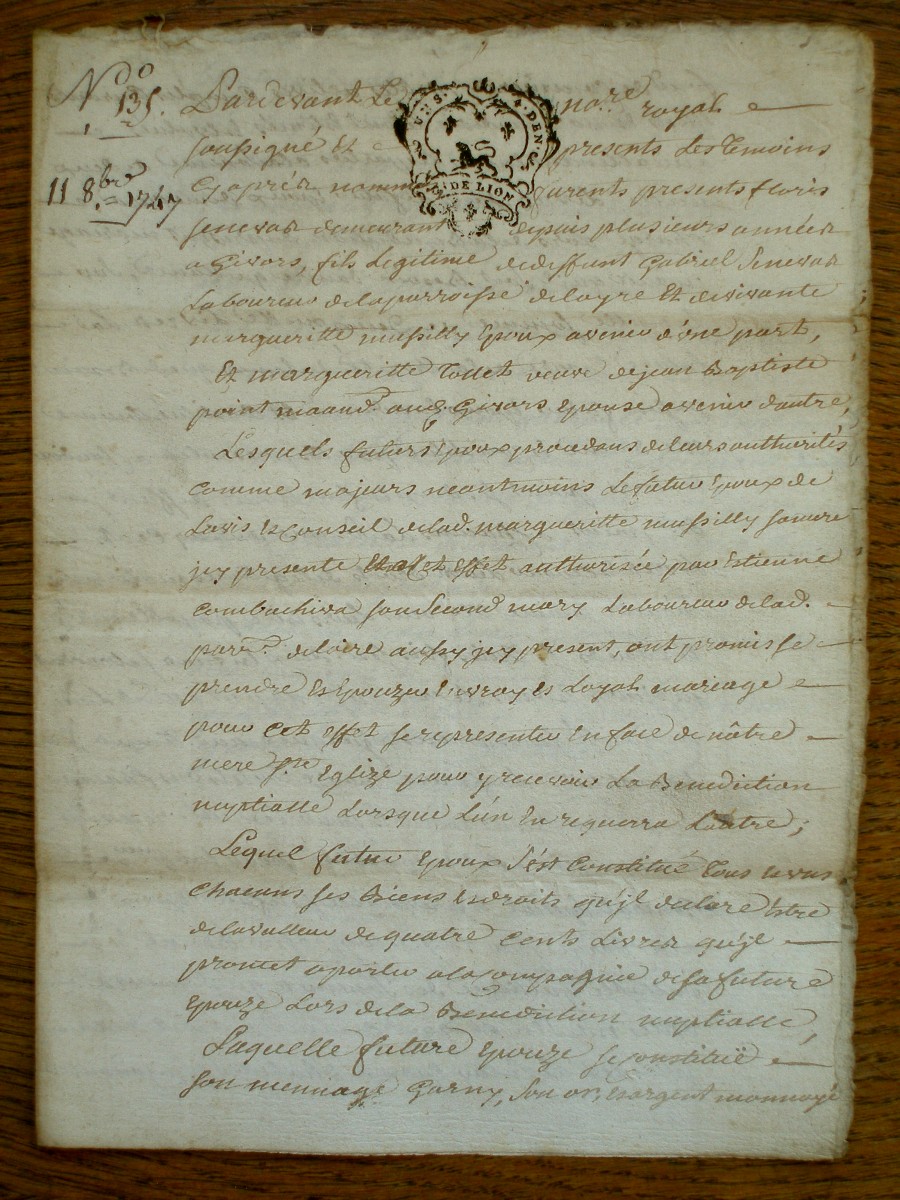 N.º 135.
11 8.bre 1747
UN S. 4. DEN.
G. DE LION
Pardevant Le no.re royal
soussigné Et presents Les Temoins
Cyaprés nommés furent presents
demeurant depuis plusieurs années
a Givors, fils Legitime de deffunt Gabriel
Laboureur de laparroisse delayre Et devivante
margueritte mussilly Epoux avenir d'une part,
Et margueritte veuve dejean Baptiste
point Givors Epouse avenir dautre,
Lesquels futurs Epoux procedans deleurs authorités
comme majeurs neantmoins Lefutur Epoux de
Lavis Et Conseil delad. margueritte mussilly samere
jcy presente Et a cet Effet authorisée par Estienne
son second mary Laboureur delad.
parr.e deloire aussy jcy present, ont promis se
prendre Et Epouzer En vray Et Loyal mariage
pour cet effet se representer En face de nôtre
mere s.te Eglize pour y recevoir La Benediction
nuptialle Lorsque L'un En requerra Lautre;
Lequel futur Epoux s'est Constitué Tous
Chacuns ses Biens Et droits qu'jl declare Estre
delavalleur de quatre Cents Livres qu'jl
promet aporter a la Compagnie de sa future
Epouze Lors de la Bénediction nuptialle
Laquelle future Epouze se Constituë
son mennage Garny, son or, Et argent monnoyé